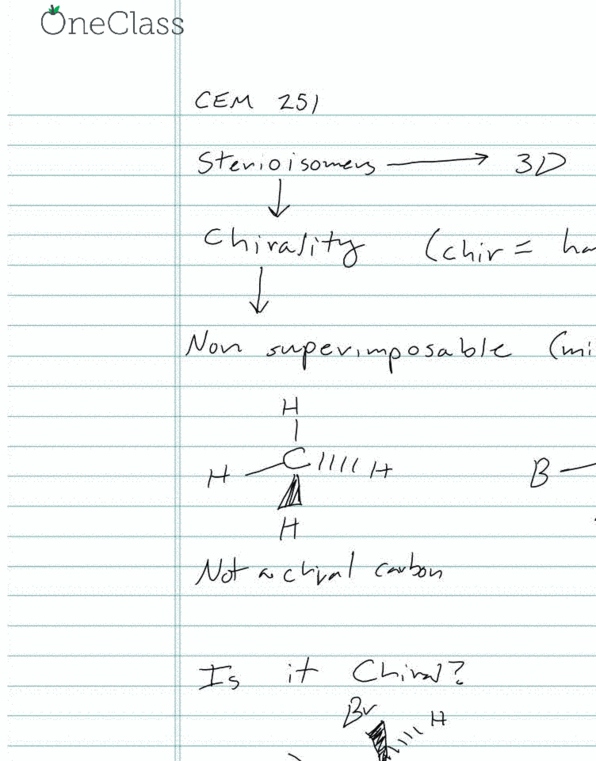 OneClass
CEM 251
Sterioisomers 3D
Chirality (chir = ha
Non superimposable (mi
H
H C H
B
H
Not a chiral carbon
Is it Chiral?
Br H